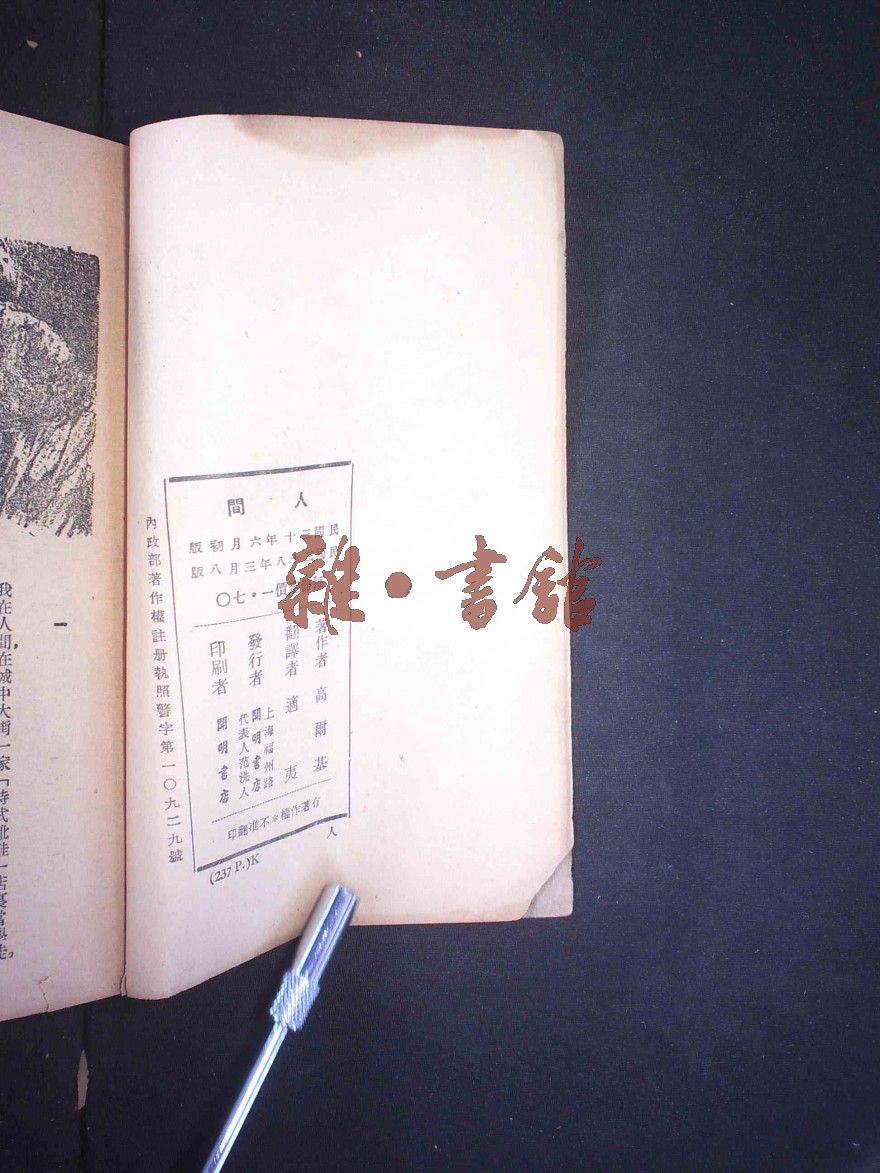 人間
民國二十年六月初版
民國 八年三月八版
價一·七〇
著作者 高爾基
翻譯者 適夷
發行者 上海福州路 開明書店 代表人范洗人
印刷者 開明書店
有著作權＊不准翻印
人
(237 P.)K
內政部著作權註册執照警字第一〇九二九號
雜·書館
一
我在人間,在城中大街一家「時式靴鞋」店裏當學徒。